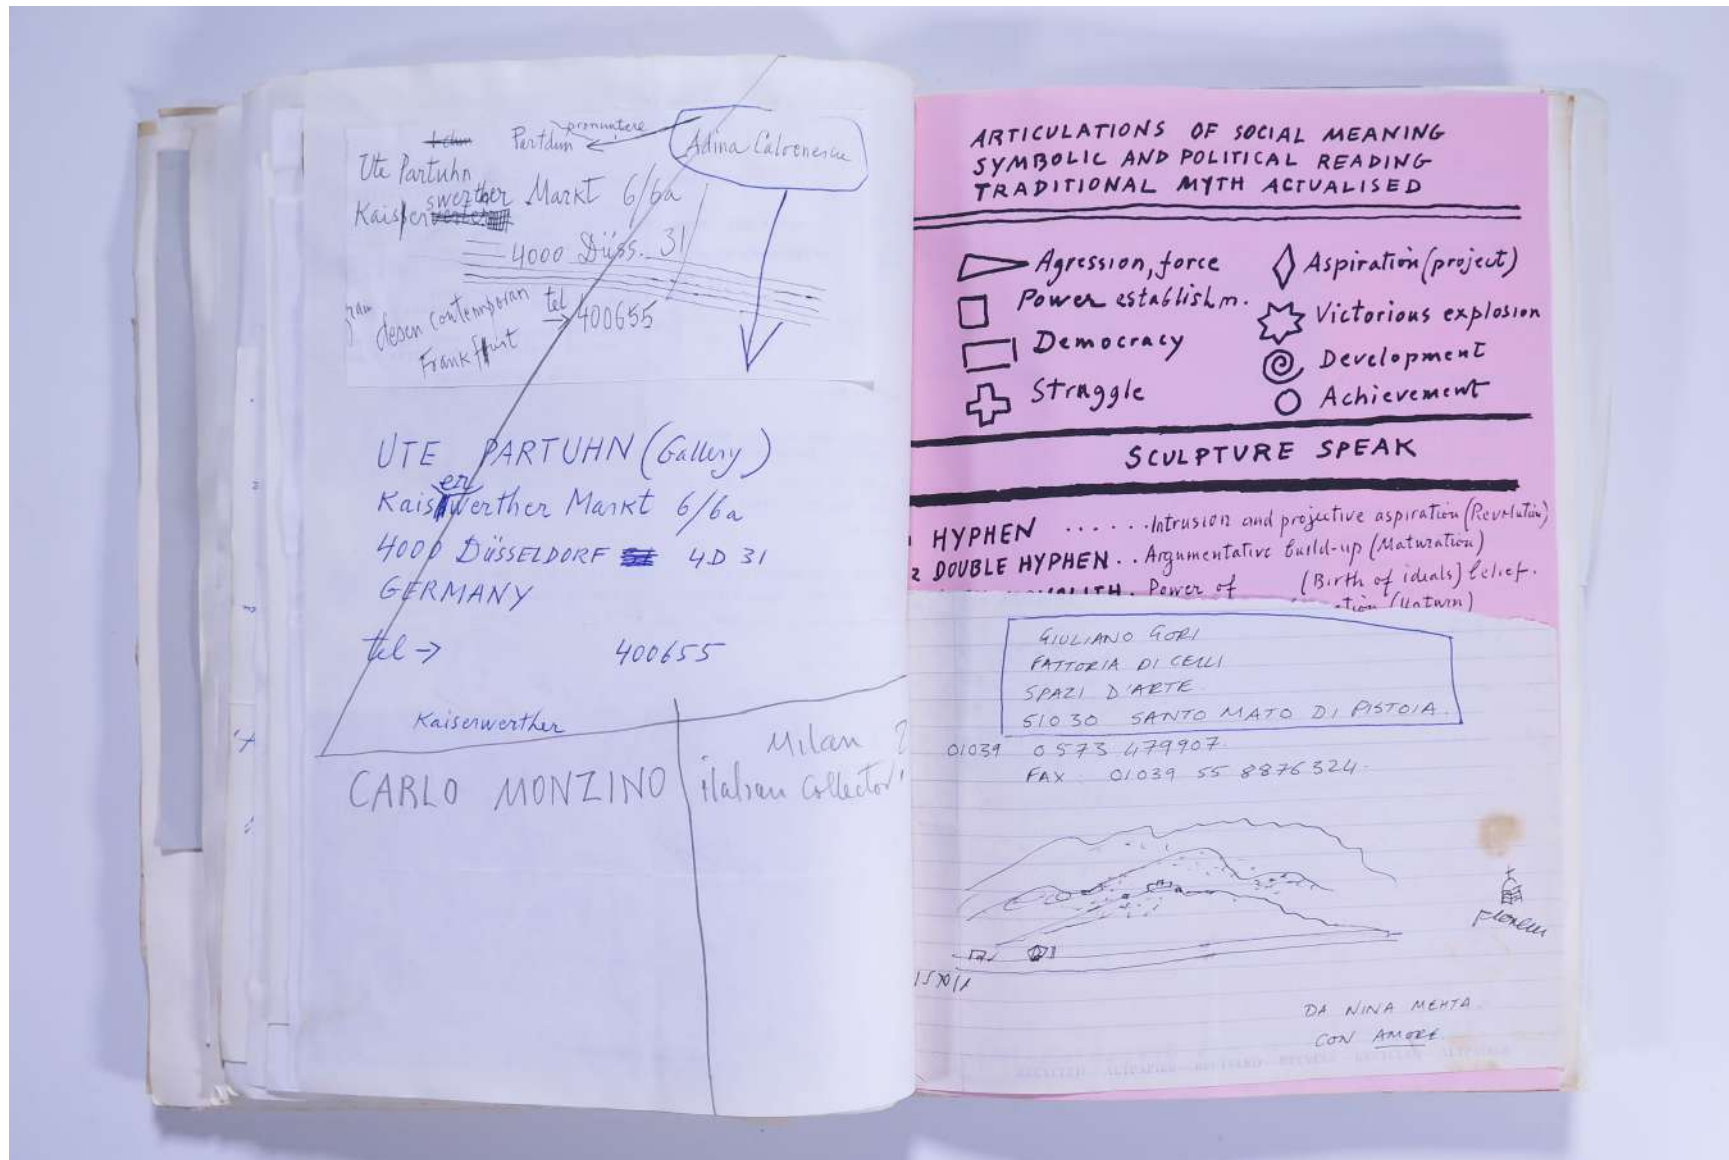 Partdun pronuntere Adina
Ute Partuhn
swerther Markt 6/6a
Kaiser
4000 Düss. 31
desen contemporan tel → 400655
Frankfurt
UTE PARTUHN (Gallery)
er
Kaiswerther Markt 6/6a
4000 DÜSSELDORF 4D 31
GERMANY
tel → 400655
Kaiserwerther
CARLO MONZINO
Milan ?
italian collector
ARTICULATIONS OF SOCIAL MEANING
SYMBOLIC AND POLITICAL READING
TRADITIONAL MYTH ACTUALISED
Agression, force
Aspiration (project)
Power establishm.
Victorious explosion
Democracy
Development
Struggle
Achievement
SCULPTURE SPEAK
HYPHEN ...... Intrusion and projective aspiration (Revolution)
2 DOUBLE HYPHEN .. Argumentative build-up (Maturation)
Power of (Birth of ideals) belief.
GIULIANO GORI
FATTORIA DI CELLI
SPAZI D'ARTE
51030 SANTO MATO DI PISTOIA.
01039 0573 479907.
FAX: 01039 55 8876324.
DA NINA MEHTA.
CON AMORE.